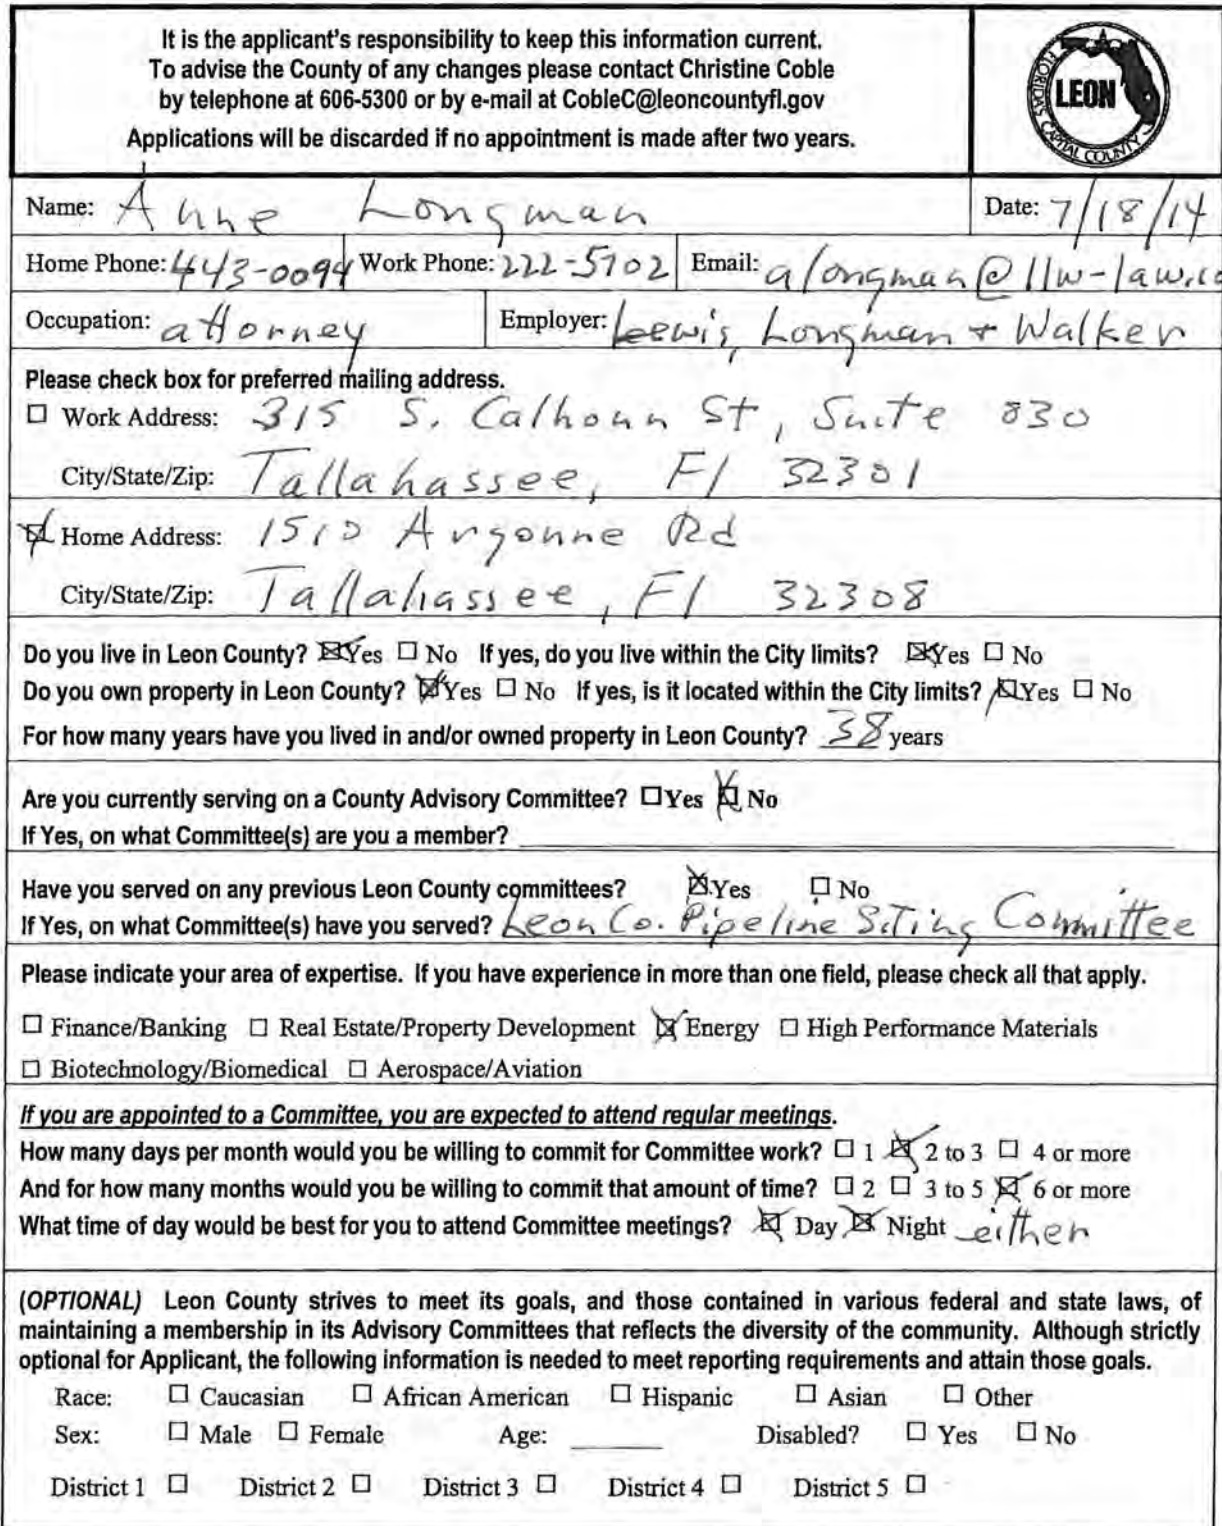 It is the applicant's responsibility to keep this information current.
To advise the County of any changes please contact Christine Coble
by telephone at 606-5300 or by e-mail at CobleC@leoncountyfl.gov
Applications will be discarded if no appointment is made after two years.
LEON
FLORIDA'S CAPITAL COUNTY
Name: Anne Longman Date: 7/18/14
Home Phone: 443-0094 Work Phone: 222-5702 Email: alongman@llw-law.co
Occupation: attorney Employer: Lewis, Longman + Walker
Please check box for preferred mailing address.
☐ Work Address: 315 S. Calhoun St, Suite 830
City/State/Zip: Tallahassee, Fl 32301
☒ Home Address: 1510 Argonne Rd
City/State/Zip: Tallahassee, Fl 32308
Do you live in Leon County? ☒ Yes ☐ No If yes, do you live within the City limits? ☒ Yes ☐ No
Do you own property in Leon County? ☒ Yes ☐ No If yes, is it located within the City limits? ☒ Yes ☐ No
For how many years have you lived in and/or owned property in Leon County? 38 years
Are you currently serving on a County Advisory Committee? ☐ Yes ☒ No
If Yes, on what Committee(s) are you a member?
Have you served on any previous Leon County committees? ☒ Yes ☐ No
If Yes, on what Committee(s) have you served? Leon Co. Pipeline Siting Committee
Please indicate your area of expertise. If you have experience in more than one field, please check all that apply.
☐ Finance/Banking ☐ Real Estate/Property Development ☒ Energy ☐ High Performance Materials
☐ Biotechnology/Biomedical ☐ Aerospace/Aviation
If you are appointed to a Committee, you are expected to attend regular meetings.
How many days per month would you be willing to commit for Committee work? ☐ 1 ☒ 2 to 3 ☐ 4 or more
And for how many months would you be willing to commit that amount of time? ☐ 2 ☐ 3 to 5 ☒ 6 or more
What time of day would be best for you to attend Committee meetings? ☒ Day ☒ Night either
(OPTIONAL) Leon County strives to meet its goals, and those contained in various federal and state laws, of
maintaining a membership in its Advisory Committees that reflects the diversity of the community. Although strictly
optional for Applicant, the following information is needed to meet reporting requirements and attain those goals.
Race: ☐ Caucasian ☐ African American ☐ Hispanic ☐ Asian ☐ Other
Sex: ☐ Male ☐ Female Age: ______ Disabled? ☐ Yes ☐ No
District 1 ☐ District 2 ☐ District 3 ☐ District 4 ☐ District 5 ☐